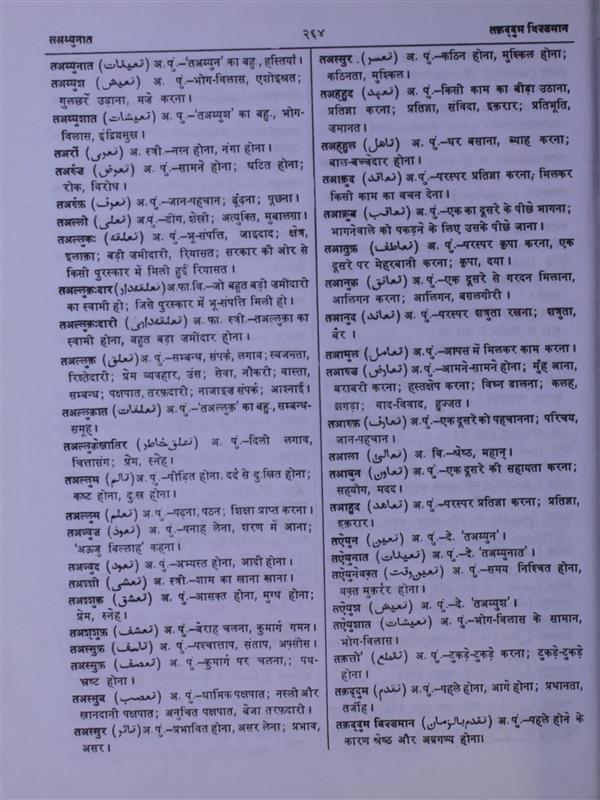 तअय्युनात
२६४
तक़द्दुम बिरज़मान
तअय्युनात (تعینات) अ. पुं.–'तअय्युन' का बहु., हस्तियाँ।
तअय्युश (تعیش) अ. पुं.–भोग-विलास, एशोइश्रत;
गुलछरें उड़ाना, मज़े करना।
तअय्युशात (تعیشات) अ. पुं.–'तअय्युश' का बहु., भोग-
विलास, इंद्रियसुख।
तअर्री (تعری) अ. स्त्री.–नग्न होना, नंगा होना।
तअर्रुज़ (تعرض) अ. पुं.–सामने होना; घटित होना;
रोक, विरोध।
तअर्रुफ़ (تعرف) अ. पुं.–जान-पहचान; ढूंढ़ना; पूछना।
तअल्ली (تعلی) अ.पुं.–डींग, शेख़ी; अत्युक्ति, मुबालग़ा।
तअल्लुक़ः (تعلقہ) अ. पुं.–भू-संपत्ति, जाइदाद; क्षेत्र,
इलाक़ा; बड़ी ज़मींदारी, रियासत; सरकार की ओर से
किसी पुरस्कार में मिली हुई रियासत।
तअल्लुक़ःदार (تعلقہدار) अ.फ़ा.वि.–जो बहुत बड़ी ज़मींदारी
का स्वामी हो; जिसे पुरस्कार में भू-संपत्ति मिली हो।
तअल्लुक़ःदारी (تعلقہداری) अ. फ़ा. स्त्री.–तअल्लुक़ा का
स्वामी होना, बहुत बड़ा ज़मींदार होना।
तअल्लुक़ (تعلق) अ. पुं.–सम्बन्ध, संपर्क, लगाव; स्वजनता,
रिश्तेदारी; प्रेम व्यवहार, उंस; सेवा, नौकरी; वास्ता,
सम्बन्ध; पक्षपात, तरफ़दारी; नाजाइज़ संपर्क; आश्नाई।
तअल्लुक़ात (تعلقات) अ. पुं.–'तअल्लुक़' का बहु., सम्बन्ध-
समूह।
तअल्लुक़ेख़ातिर (تعلق خاطر) अ. पुं.–दिली लगाव,
चित्तासंग; प्रेम, स्नेह।
तअल्लुम (تالم) अ. पुं.–पीड़ित होना, दर्द से दुःखित होना;
कष्ट होना, दुःख होना।
तअल्लुम (تعلم) अ. पुं.–पढ़ना, पठन; शिक्षा प्राप्त करना।
तअव्वुज़ (تعوذ) अ. पुं.–पनाह लेना, शरण में आना;
'अऊज़ु बिल्लाह' कहना।
तअव्वुद (تعود) अ. पुं.–अभ्यस्त होना, आदी होना।
तअश्शी (تعشی) अ. स्त्री.–शाम का खाना खाना।
तअश्शुक़ (تعشق) अ. पुं.–आसक्त होना, मुग्ध होना;
प्रेम, स्नेह।
तअश्शुफ़ (تعشف) अ. पुं.–बेराह चलना, कुमार्ग गमन।
तअस्सुफ़ (تاسف) अ. पुं.–पश्चात्ताप, संताप, अफ़्सोस।
तअस्सुफ़ (تعصف) अ. पुं.–कुमार्ग पर चलना,; पथ-
भ्रष्ट होना।
तअस्सुब (تعصب) अ. पुं.–धार्मिक पक्षपात; नस्ली और
ख़ानदानी पक्षपात; अनुचित पक्षपात, बेजा तरफ़दारी।
तअस्सुर (تاثر) अ. पुं.–प्रभावित होना, असर लेना; प्रभाव,
असर।
तअस्सुर (تعسر) अ. पुं.–कठिन होना, मुश्किल होना;
कठिनता, मुश्किल।
तअह्हुद (تعہد) अ. पुं.–किसी काम का बीड़ा उठाना,
प्रतिज्ञा करना; प्रतिज्ञा, संविदा, इक़रार; प्रतिभूति,
ज़मानत।
तअह्हुल (تاہل) अ. पुं.–घर बसाना, ब्याह करना;
बाल-बच्चेदार होना।
तआक़ुद (تعاقد) अ. पुं.–परस्पर प्रतिज्ञा करना, मिलकर
किसी काम का वचन देना।
तआक़ुब (تعاقب) अ. पुं.–एक का दूसरे के पीछे भागना;
भागनेवाले को पकड़ने के लिए उसके पीछे जाना।
तआतुफ़ (تعاطف) अ. पुं.–परस्पर कृपा करना, एक
दूसरे पर मेहरबानी करना; कृपा, दया।
तआनुक़ (تعانق) अ. पुं.–एक दूसरे से गरदन मिलाना,
आलिंगन करना; आलिंगन, बग़लगीरी।
तआनुद (تعاند) अ. पुं.–परस्पर शत्रुता रखना; शत्रुता,
बैर।
तआमुल (تعامل) अ. पुं.–आपस में मिलकर काम करना।
तआरुज़ (تعارض) अ. पुं.–आमने-सामने होना; मुँह आना,
बराबरी करना; हस्तक्षेप करना; विघ्न डालना; कलह,
झगड़ा; वाद-विवाद, हुज्जत।
तआरुफ़ (تعارف) अ. पुं.–एक दूसरे को पहचानना; परिचय,
जान-पहचान।
तआला (تعالیٰ) अ. वि.–श्रेष्ठ, महान्।
तआवुन (تعاون) अ. पुं.–एक दूसरे की सहायता करना;
सहयोग, मदद।
तआहुद (تعاہد) अ. पुं.–परस्पर प्रतिज्ञा करना; प्रतिज्ञा,
इक़रार।
तऐयुन (تعین) अ. पुं.–दे. 'तअय्युन'।
तऐयुनात (تعینات) अ. पुं.–दे. 'तअय्युनात'।
तऐयुनेवक़्त (تعین وقت) अ. पुं.–समय निश्चित होना,
वक़्त मुक़र्रर होना।
तऐयुश (تعیش) अ. पुं.–दे. 'तअय्युश'।
तऐयुशात (تعیشات) अ. पुं.–भोग-विलास के सामान,
भोग-विलास।
तक़त्तो' (تقطع) अ. पुं.–टुकड़े-टुकड़े करना; टुकड़े-टुकड़े
होना।
तक़द्दुम (تقدم) अ. पुं.–पहले होना, आगे होना; प्रधानता,
तर्जीह।
तक़द्दुम बिज़्ज़मान (تقدم بالزمان) अ. पुं.–पहले होने के
कारण श्रेष्ठ और अग्रगण्य होना।